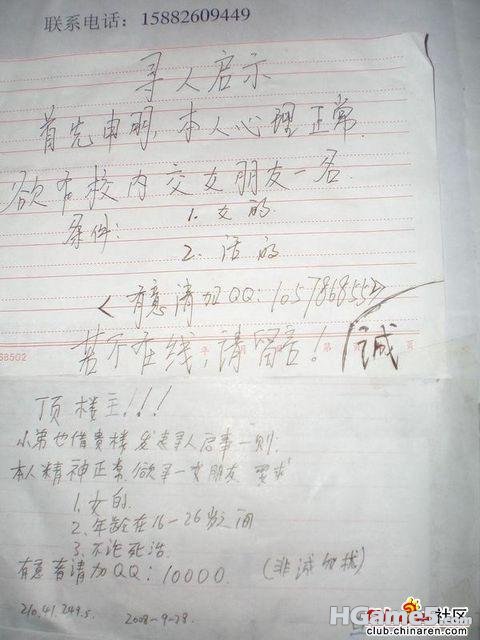 联系电话：15882609449
寻人启示
首先申明，本人心理正常.
欲在校内交女朋友一名.
条件：1. 女的
2. 活的
<有意请加QQ：105786855>
若不在线，请留言！
诚
68502
年 月 第 页
顶楼主!!!
小弟也借贵楼发表寻人启事一则.
本人精神正常.欲寻一女朋友 要求
1. 女的.
2. 年龄在16-26岁之间
3. 不论死活.
有意者请加QQ：10000. (非诚勿扰)
210.41.249.5. 2008-9-28
HGame5.com
社区
club.chinaren.com